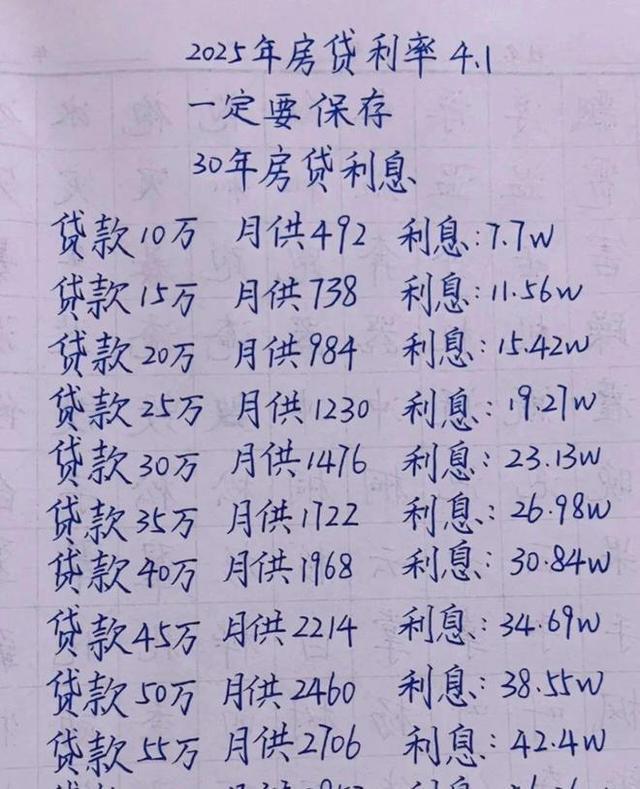 2025年房贷利率4.1
一定要保存
30年房贷利息
贷款10万 月供492 利息:7.7w
贷款15万 月供738 利息:11.56w
贷款20万 月供984 利息:15.42w
贷款25万 月供1230 利息:19.27w
贷款30万 月供1476 利息:23.13w
贷款35万 月供1722 利息:26.98w
贷款40万 月供1968 利息:30.84w
贷款45万 月供2214 利息:34.69w
贷款50万 月供2460 利息:38.55w
贷款55万 月供2706 利息:42.4w